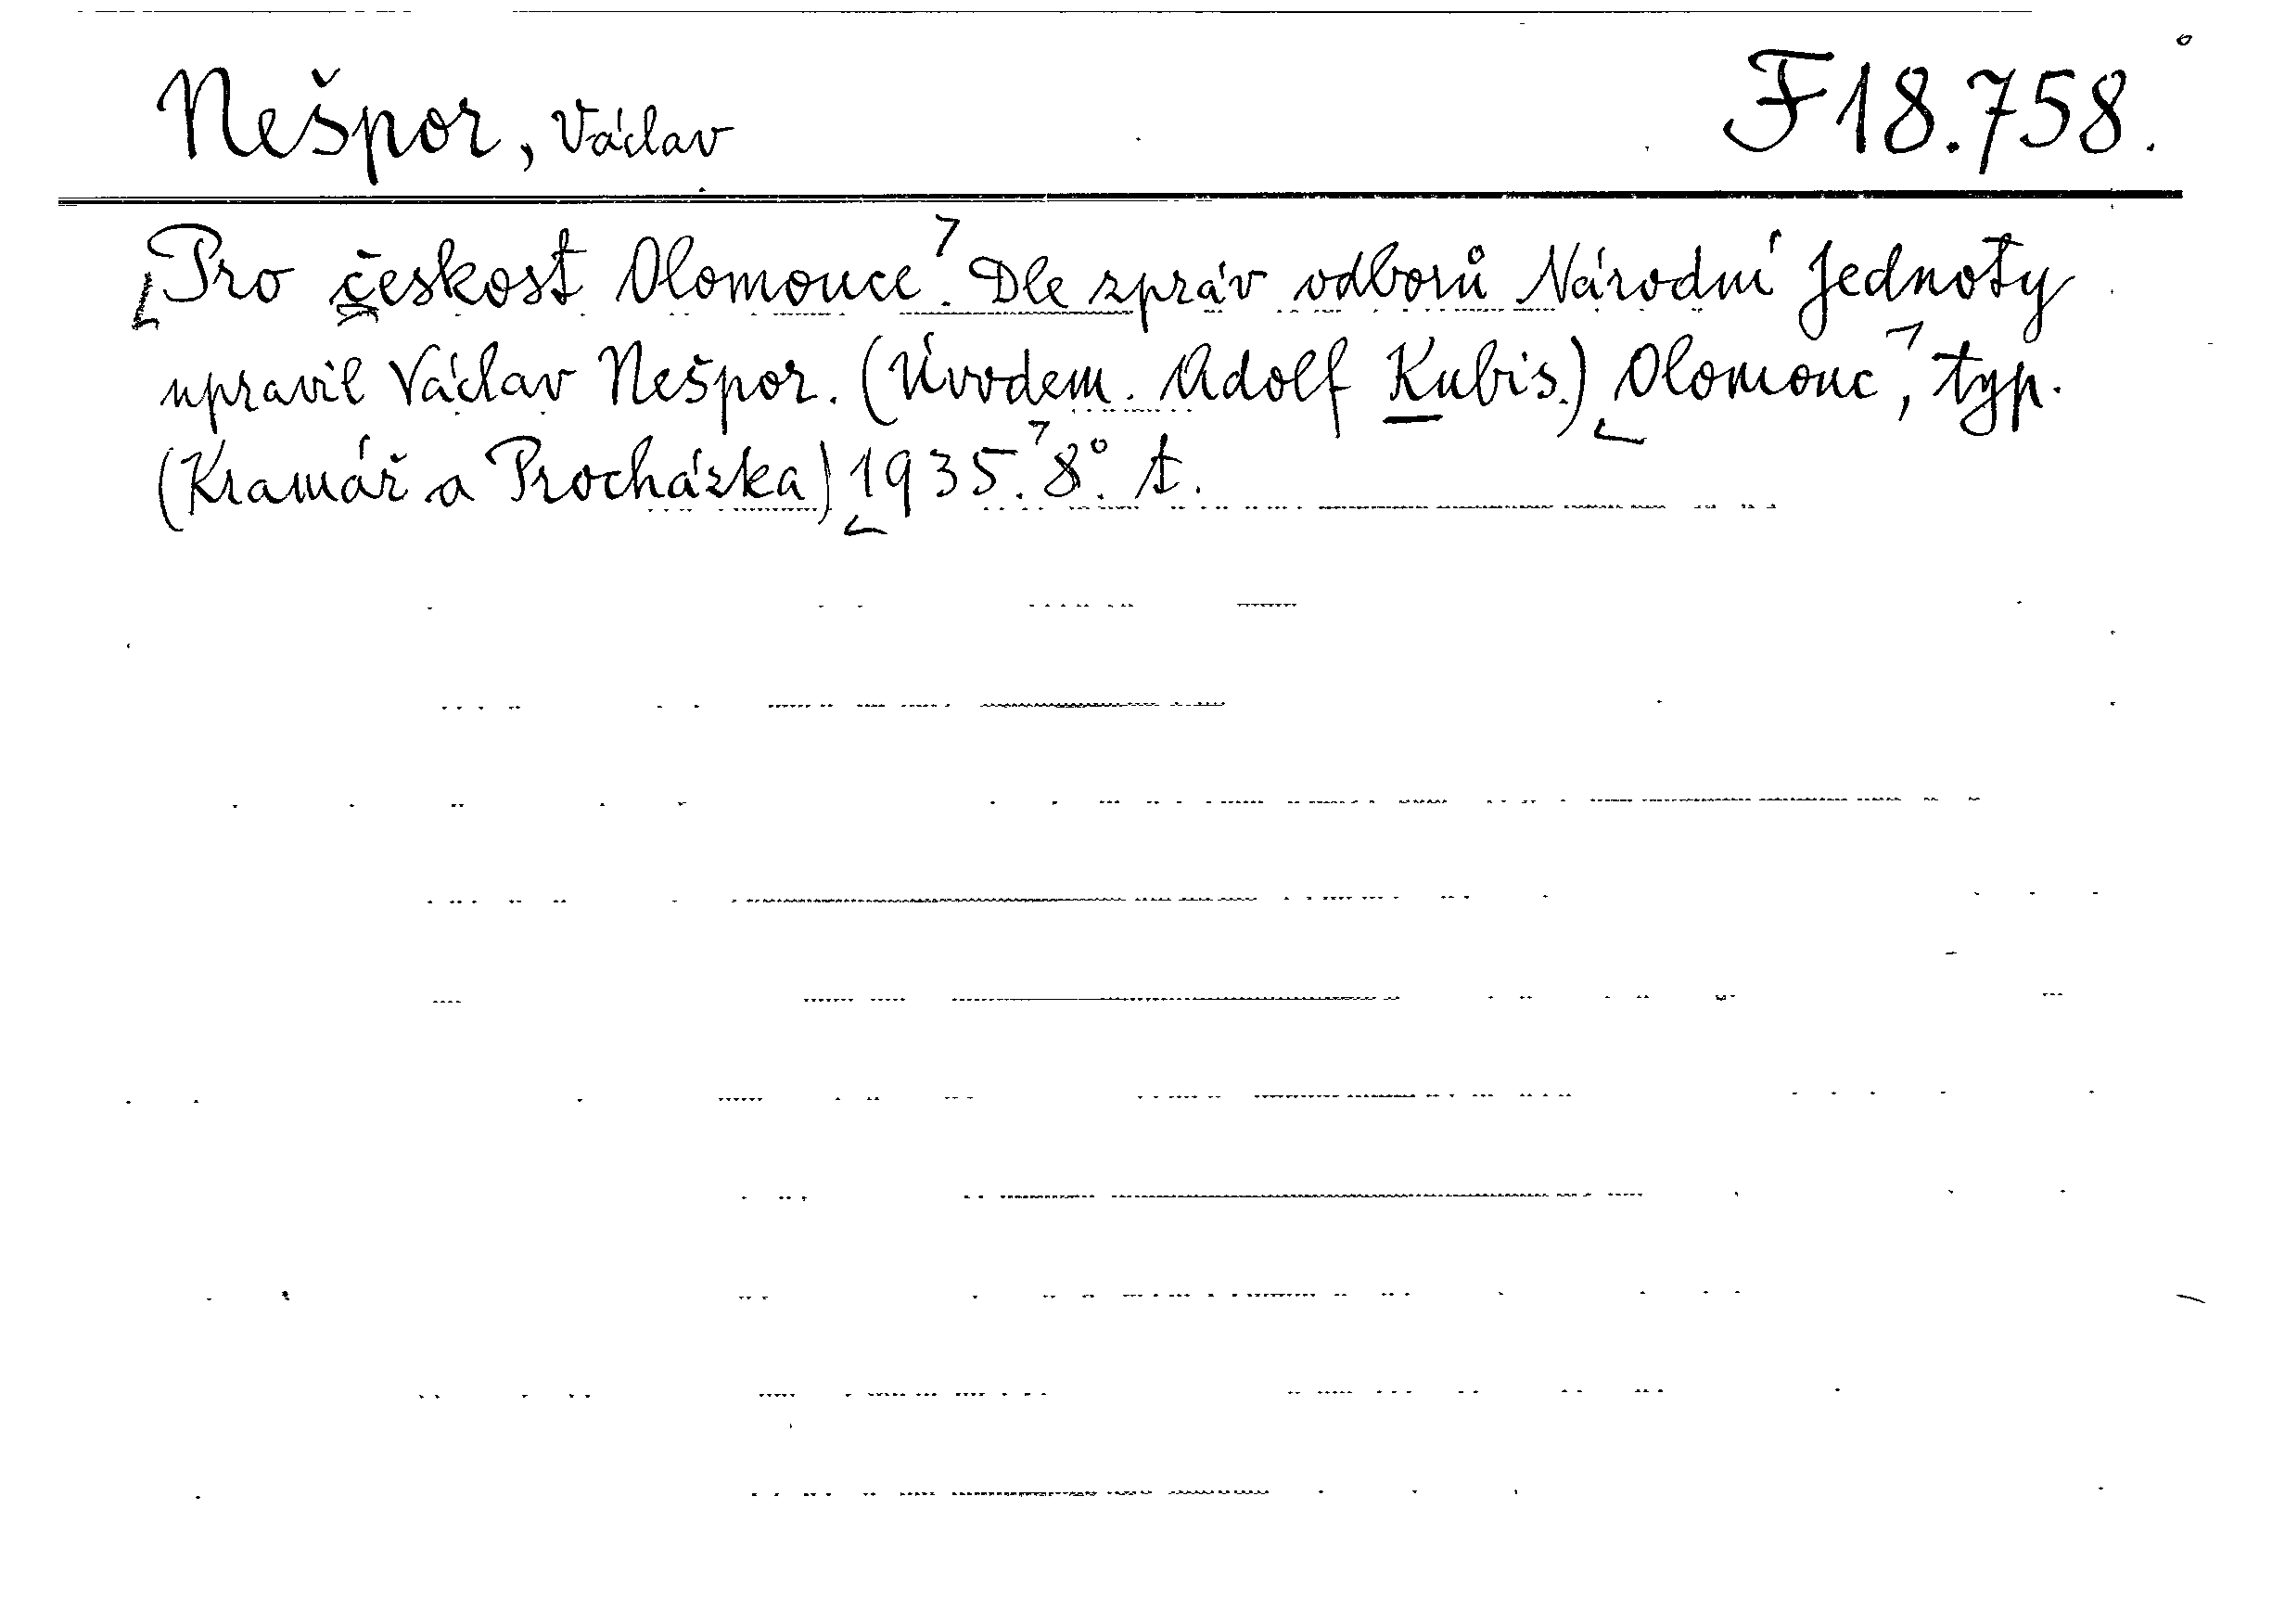 Nešpor, Václav F 18.758.
Pro českost Olomouce. Dle zpráv odborů Národní Jednoty
upravil Václav Nešpor. (Úvodem. Adolf Kubis.) Olomouc, typ.
(Kramář a Procházka) 1935. 8°. t.